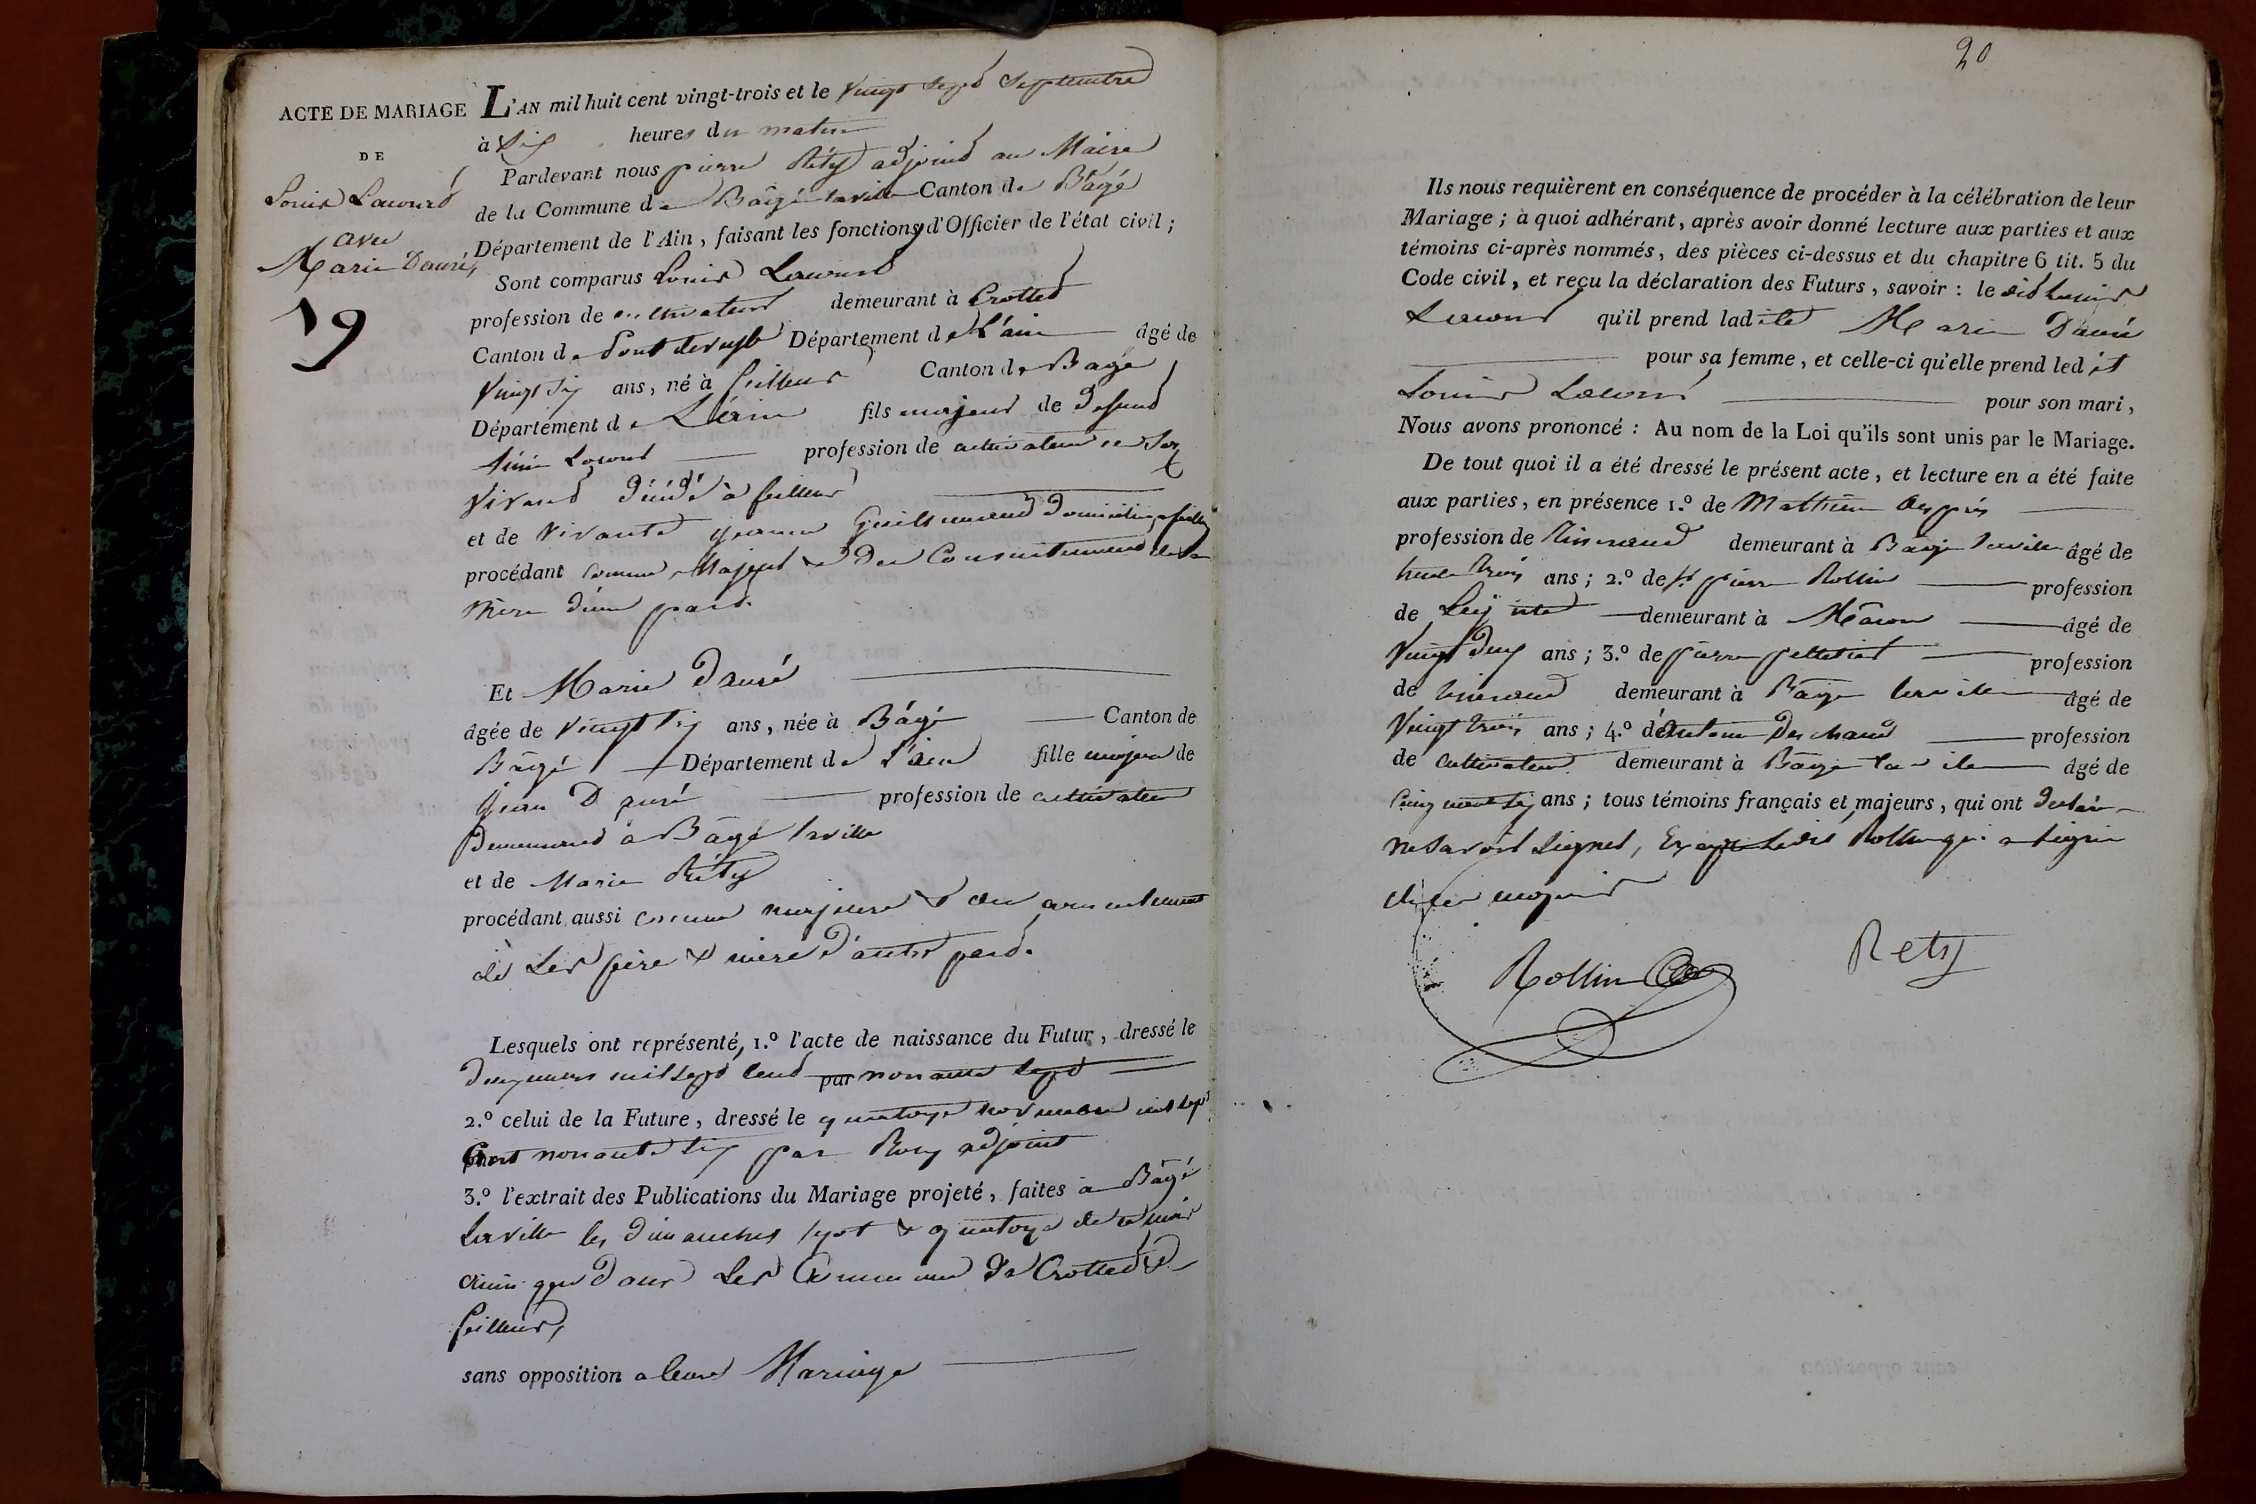 ACTE DE MARIAGE
DE
Louis Lacourt
avec
Marie Dauré
19
L'AN mil huit cent vingt-trois et le vingt sept Septembre
à Six heures du matin
Pardevant nous pierre Réty adjoint au Maire
de la Commune de Bâgé laville Canton de Bâgé
Département de l'Ain, faisant les fonctions d'Officier de l'état civil;
Sont comparus Louis Lacourt
profession de cultivateur demeurant à Crottet
Canton de Pont devesle Département de L'ain âgé de
vingt six ans, né à feillens Canton de Bagé
Département de L'ain fils majeur de defunt
Lacourt profession de cultivateur en Son
vivant décédé à feillens
et de vivante jeanne Guillemaud domiciliée a feillens
procédant comme Majeur & du Consentement de sa
mère d'une part.
Et Marie Dauré
âgée de vingt six ans, née à Bâgé Canton de
Bâgé Département de L'ain fille majeure de
Jean Dauré profession de cultivateur
Demeurant à Bâgé laville
et de Marie Réty
procédant aussi comme majeure & du consentement
de Ses père & mère d'autre part.
Lesquels ont représenté, 1.º l'acte de naissance du Futur, dressé le
deux mars mil sept Cent par nonante sept
2.º celui de la Future, dressé le quatorze novembre mil sept
Cent nonante six par adjoint
3.º l'extrait des Publications du Mariage projeté, faites à Bâgé
laville les dimanches sept & quatorze de ce mois
ainsi que dans Les Communes de Crottet &
feillens,
sans opposition a leur Mariage
20
Ils nous requièrent en conséquence de procéder à la célébration de leur
Mariage; à quoi adhérant, après avoir donné lecture aux parties et aux
témoins ci-après nommés, des pièces ci-dessus et du chapitre 6 tit. 5 du
Code civil, et reçu la déclaration des Futurs, savoir: le dit Louis
Lacourt qu'il prend ladite Marie Dauré
pour sa femme, et celle-ci qu'elle prend ledit
Louis Lacourt pour son mari,
Nous avons prononcé: Au nom de la Loi qu'ils sont unis par le Mariage.
De tout quoi il a été dressé le présent acte, et lecture en a été faite
aux parties, en présence 1.º de Mathieu
profession de Tisserand demeurant à Bâgé laville âgé de
trente trois ans; 2.º de pierre Rollin profession
de demeurant à Mâcon âgé de
Vingt deux ans; 3.º de pierre pelletier profession
de tisserand demeurant à Bâgé laville âgé de
Vingt trois ans; 4.º de Antoine Duchaud profession
de cultivateur demeurant à Bâgé la ville âgé de
Cinquante six ans; tous témoins français et majeurs, qui ont déclaré
ne Savoir Signer, Excepté Ledit Rollin qui a signé
de ce enquis
Rollin
Rety